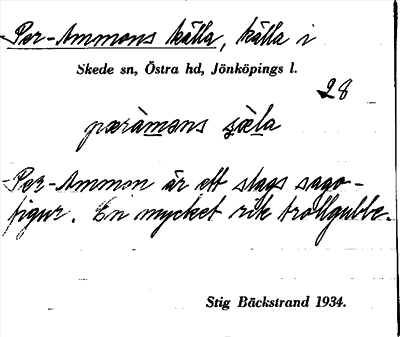 Per-Ammons källa, källa i
Skede sn, Östra hd, Jönköpings l.
28
pæràmons
Per-Ammon är ett slags sago-
figur. En mycket rik trollgubbe.
Stig Bäckstrand 1934.